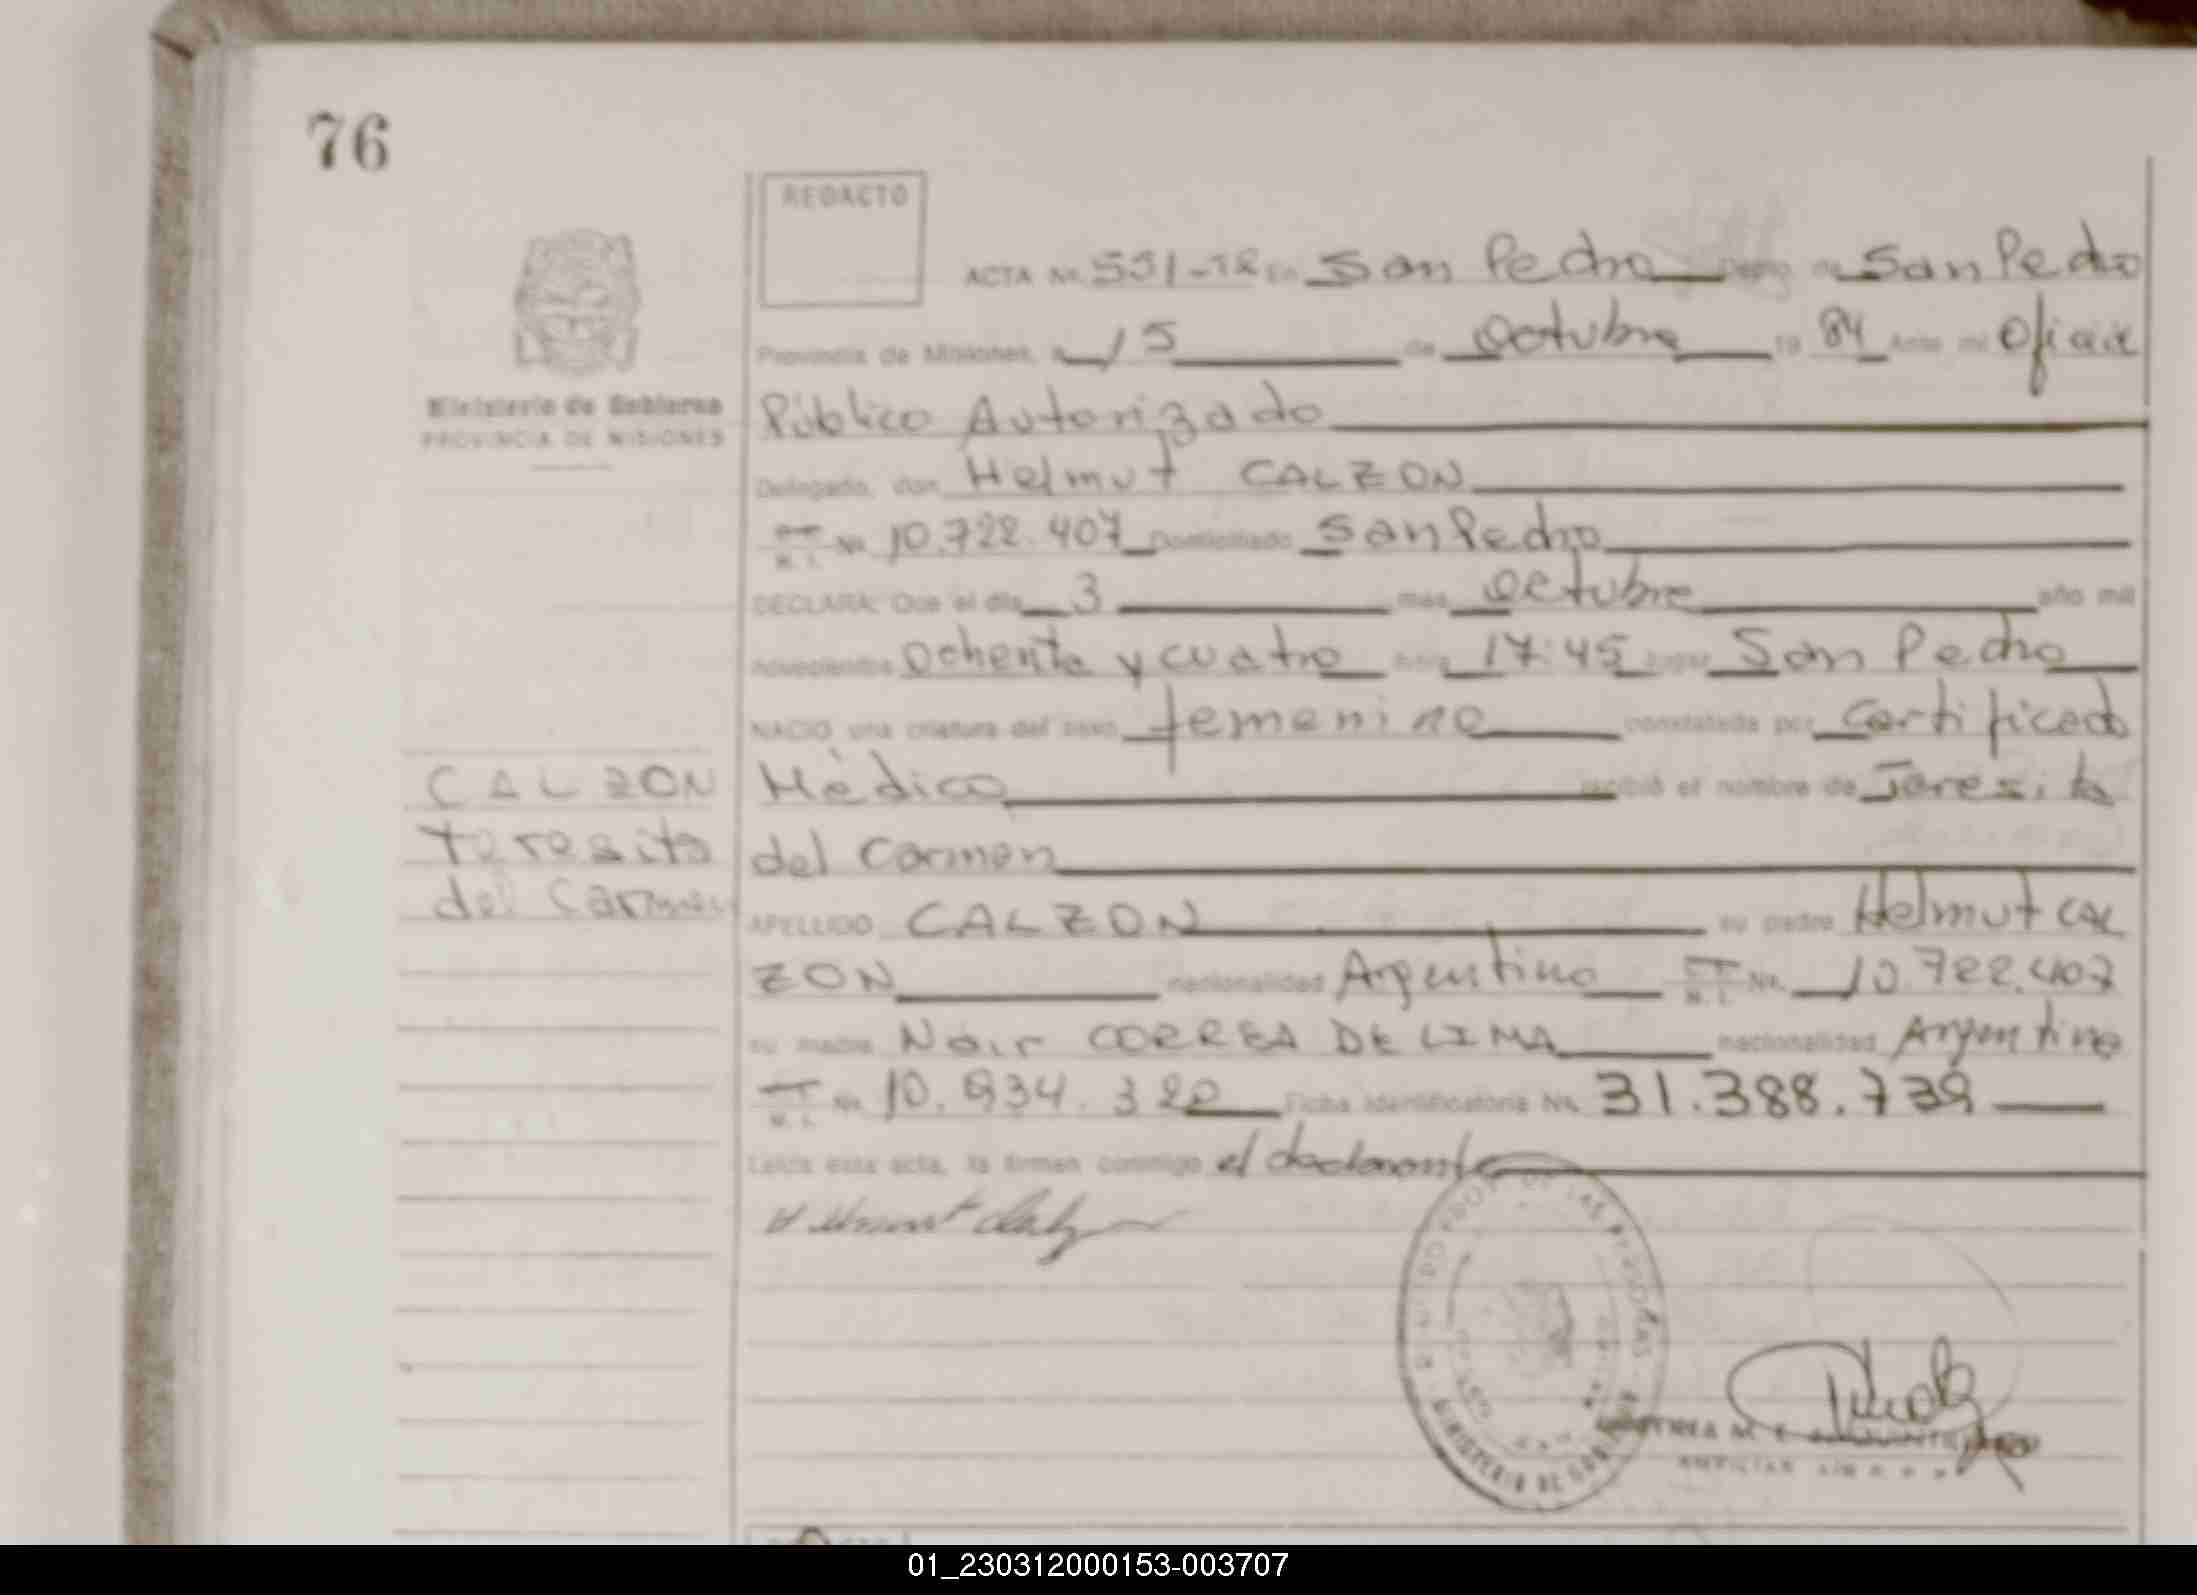 76
REDACTO
ACTA Nº 551-12 En San Pedro Depto. de San Pedro
Provincia de Misiones, a 15 de Octubre 19 84 Ante mí Oficial
Público Autorizado
Ministerio de Gobierno
PROVINCIA DE MISIONES
Delegado, don Helmut CALZON
M. I. Nº 10.722.407 Domiciliado San Pedro
DECLARA: Que el día 3 mes Octubre año mil
novecientos ochenta y cuatro hora 17:45 lugar San Pedro
NACIO una criatura del sexo femenino constatada por Certificado
Mèdico recibió el nombre de Teresita
del Carmen
CALZON
Teresita
del Carmen
APELLIDO CALZON su padre Helmut CAL
ZON nacionalidad Argentino M. I. Nº 10.722.407
su madre Nair CORREA DE LIMA nacionalidad Argentina
M. I. Nº 10.934.320 Ficha Identificatoria Nº 31.388.739
Leída esta acta, la firman conmigo el declarante
DE LAS PERSONAS
MINISTERIO DE GOB
01_230312000153-003707